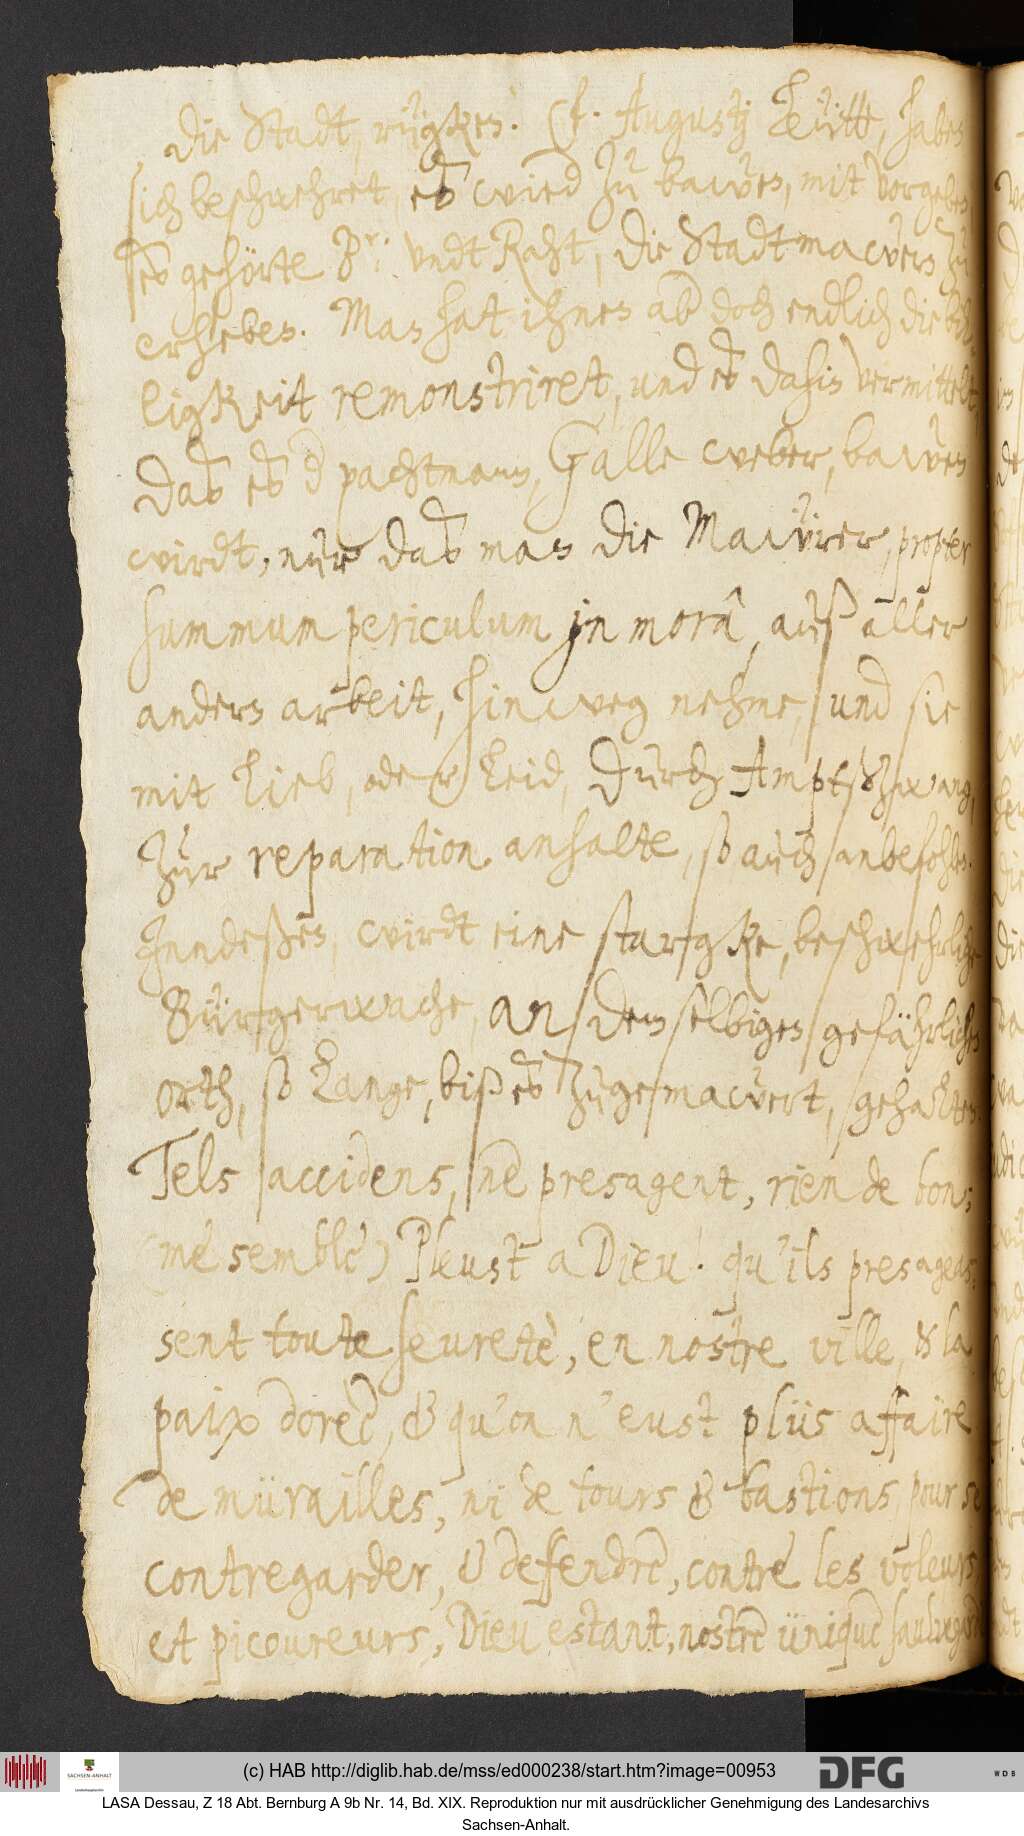 die Stadt, rügken. F. Augustj Leütt, haben
sich beschwehret, es wied zu bawen, mit vorgeben,
es gehörte B: vndt Raht, die Stadtmawern zu
erheben. Man hat ihnen ab doch endlich die bil¬
ligkeit remonstriret, und es dahin vermittelt,
das es d pachtmann, Galle weber, bawen
wirdt, nur das man die Mawrer, propter
summum periculum in morâ, auß aller
andern arbeit, hinweg nehme, und sie
mit Lieb, oder Leid, durch Ampts Zwang,
zur reparation anhalte, so auch anbefohlen.
Inndeßen, wirdt eine stargke, beschwehrliche
Bürgerwache, an demselbigen gefährlichen
orth, so Lange, biß es zugemawert, gehalten.
Tels accidens, ne presagent, rien de bon,
me semble) Pleust a Dieu! qu'ils presageas¬
sent toute seuretè, en nostre ville, & la
paix doree, & qu'on n'eust plüs affaire
de mürailles, ni de tours & bastions, pour se
contregarder, & deffendre, contre les voleurs
et picoureurs, Dieu estant, nostre ünique saulvegarde
(c) HAB http://diglib.hab.de/mss/ed000238/start.htm?image=00953
DFG
WDB
SACHSEN-ANHALT
LASA Dessau, Z 18 Abt. Bernburg A 9b Nr. 14, Bd. XIX. Reproduktion nur mit ausdrücklicher Genehmigung des Landesarchivs
Sachsen-Anhalt.